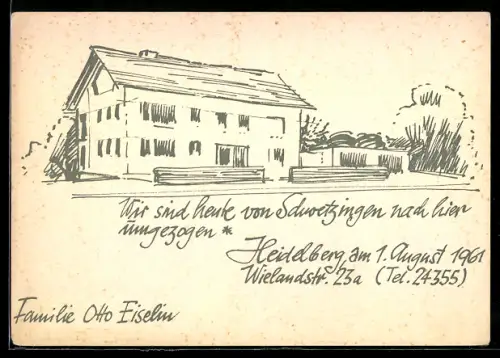 Wir sind heute von Schwetzingen nach hier
umgezogen *
Heidelberg, am 1. August 1961
Wielandstr. 23a (Tel. 24355)
Familie Otto Eiselin